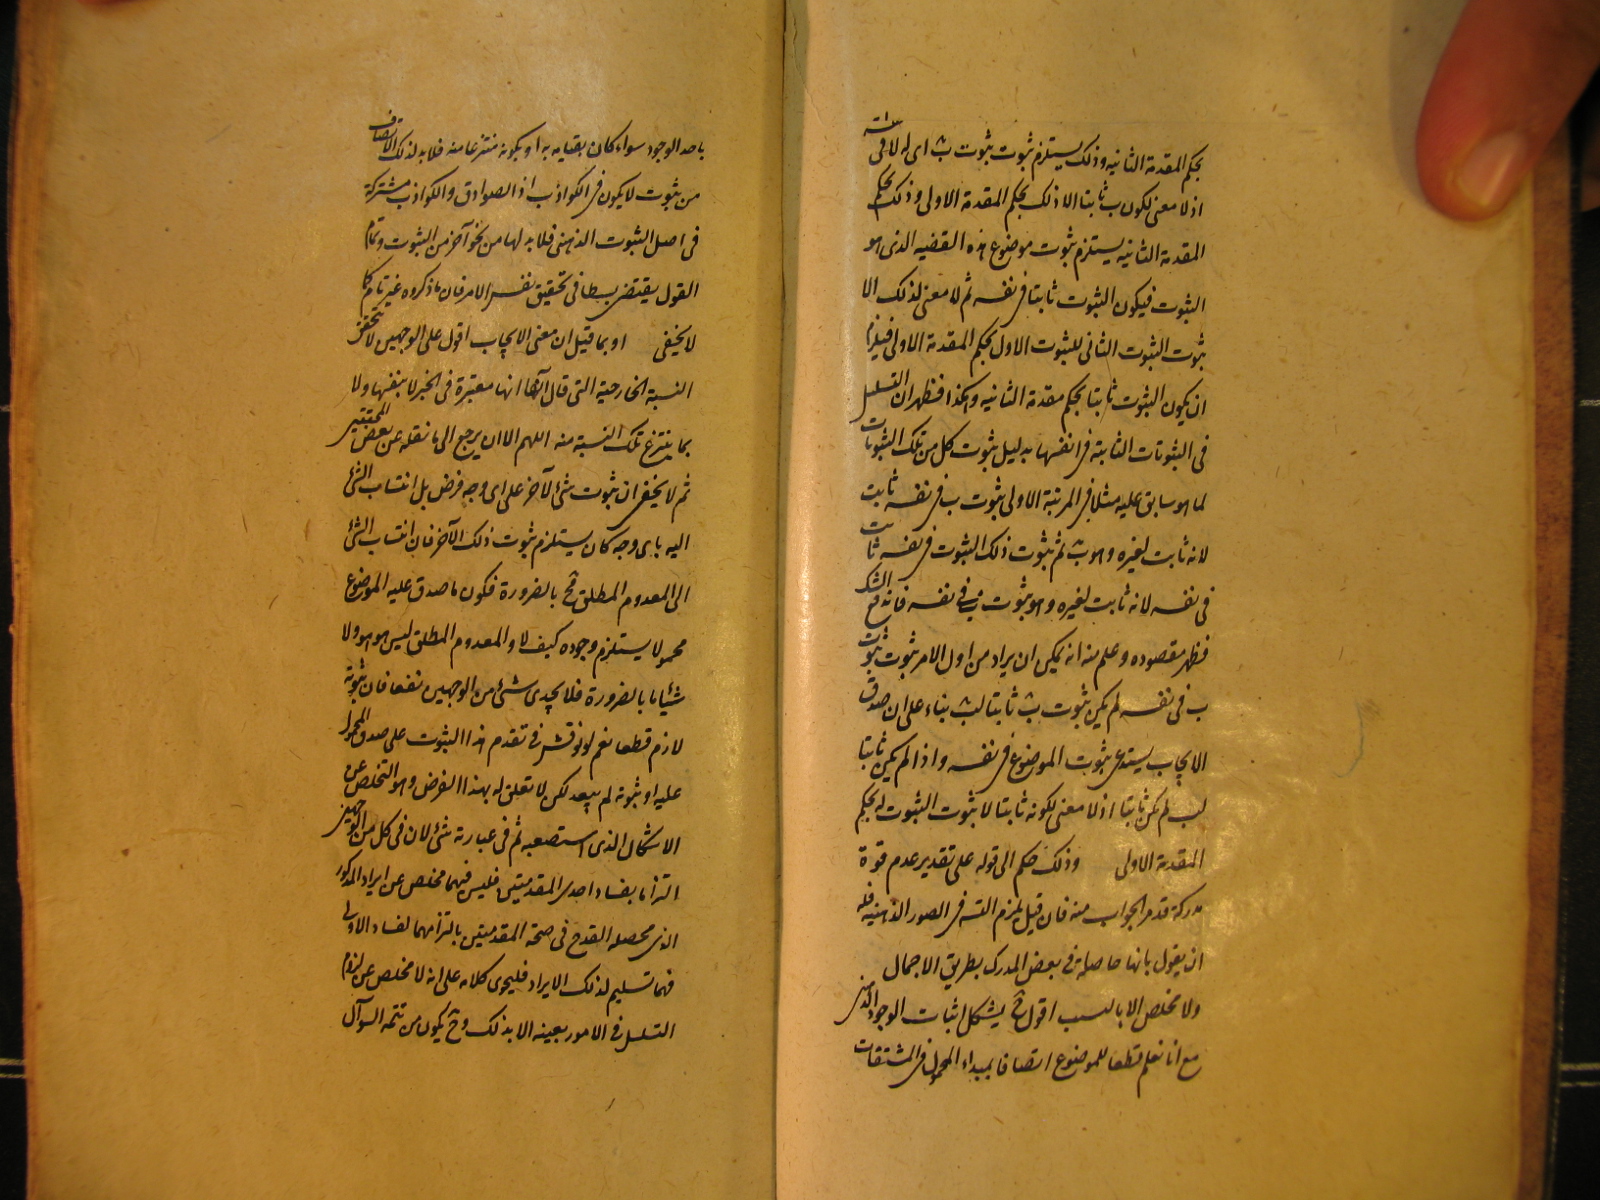 بحكم المقدمة الثانية وذلك يستلزم ثبوت ثبوت ب اى له لا فى
اذ لا معنى لكون ب ثابتا الا ذلك بحكم المقدمة الاولى وذلك بحكم
المقدمة الثانية يستلزم ثبوت موضوع هذه القضية الذى هو
الثبوت فيكون الثبوت ثابتا فى نفسه ثم لا معنى لذلك الا
ثبوت الثبوت الثانى للثبوت الاول بحكم المقدمة الاولى فيلزم
ان يكون الثبوت ثابتا بحكم مقدمة الثانية وهكذا فظهر ان التسلسل
فى الثبوتات الثابتة فى انفسها بدليل ثبوت كل من تلك الثبوتات
لما هو سابق عليه مثلا فى المرتبة الاولى ثبوت ب فى نفسه ثابت
لانه ثابت لغيره وهو ب ثم ثبوت ذلك الثبوت فى نفسه ثابت
فى نفسه لانه ثابت لغيره وهو ثبوت ب فى نفسه فانه
فظهر مقصوده وعلم منه انه يمكن ان يراد من اول الامر ثبوت ثبوت
ب فى نفسه لم يكن ثبوت ب ثابتا لب بناء على ان صدق
الايجاب يستدعى ثبوت الموضوع فى نفسه واذا لم يكن ثابتا
لب لم يكن ثابتا اذ لا معنى لكونه ثابتا الا ثبوت الثبوت له بحكم
المقدمة الاولى وذلك حكم الى قوله على تقدير عدم قوة
مدركة قد مر الجواب منه فان قيل يلزم التسه فى الصور الذهنية فله
ان يقول بانها حاصلة فى بعض المدرك بطريق الاجمال
ولا مخلص الا بالسلب اقول ح يشكل اثبات الوجود الذهنى
مع انا نعلم قطعا للموضوع اتصافا بمبداء المحمول فى المشتقات
باحد الوجود سواء كان بقيامه به او بكونه منتزعا منه فلا بد لذلك الاتصاف
من ثبوت لا يكون فى الكواذب اذ الصوادق والكواذب مشتركة
فى اصل الثبوت الذهنى فلا بد لها من نحو آخر من الثبوت وتمام
القول يقتضى بسطا فى تحقيق نفس الامر فان ما ذكروه غير تام كما
لا يخفى او بما قيل ان معنى الايجاب اقول على الوجهين لا تتحقق
النسبة الخارجية التى قال آنفا انها معتبرة فى الخبر لا بنفسها ولا
بما ينتزع تلك النسبة منه اللهم الا ان يرجع الى ما نقله عن بعض المحققين
ثم لا يخفى ان ثبوت شئ لآخر على اى وجه فرض بل انتساب الشئ
اليه باى وجه كان يستلزم ثبوت ذلك الآخر فان انتساب الشئ
الى المعدوم المطلق مح بالضرورة فكون ما صدق عليه الموضوع
محمولا يستلزم وجوده كيف لا والمعدوم المطلق ليس هو هو ولا
شيئا ما بالضرورة فلا يجدى شئ من الوجهين نفعا فان ثبوته
لازم قطعا نعم لو نوقش فى تقدم هذا الثبوت على صدق المحمول
عليه او ثبوته لم يبعد لكن لا تعلق له بهذا الغرض وهو التخلص عن
الاشكال الذى استصعبه ثم فى عبارته شئ لان فى كل من الوجهين
التزاما بفساد احدى المقدمتين فليس فيهما مخلص عن ايراد المذكور
الذى محصله القدح فى صحة المقدمتين بالتزامهما لفساد الاولى
فهما تسليم لذلك الايراد فليحوى كلامه على انه لا مخلص عن لزوم
التسلسل فى الامور بعينه الا بذلك وح يكون من تتمه السوآل